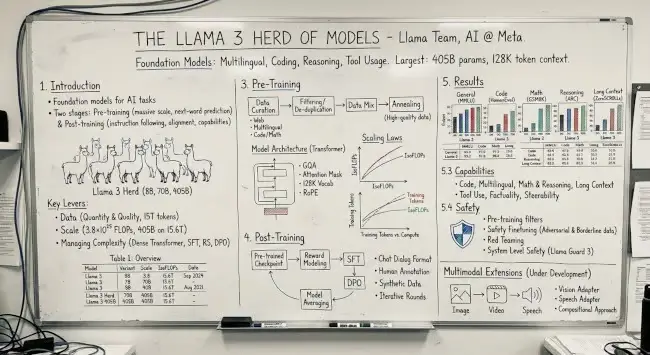 THE LLAMA 3 HERD OF MODELS - Llama Team, AI @ Meta.
Foundation Models: Multilingual, Coding, Reasoning, Tool Usage. Largest: 405B params, 128K token context.
1. Introduction
• Foundation models for AI tasks
• Two stages: Pre-training (massive scale, next-word prediction)
& Post-training (instruction following, alignment, capabilities)
Llama 3 Herd (88, 708, 405B)
Key Levers:
• Data (Quantity & Quality, 15T tokens)
• Scale (3.8×10²⁵ FLOPs, 405B on 15.6T)
• Managing Complexity (Dense Transformer, SFT, RS, DPO)
Table 1: Overview
Model Variant Scale IsoFLOPs Date
Llama 3 88 3.8 15.6T Sep 2024
Llama 3 78 708 15.6T -
Llama 3 88 408 15.6T Aug 2021
Llama 3 Herd 708 405B 15.6T -
Llama 3 405B 405B 405B 15.6T -
3. Pre-Training
Data Curation
Filtering/De-duplication
Data Mix
Annealing
(High-quality data)
• Web
• Multilingual
• Code/Math
Model Architecture (Transformer)
• GQA
• Attention Mask
• 128K Vocab
• RoPE
Scaling Laws
IsoFLOPs
IsoFLOPs
IsoFLOPs
Training Tokens
Training Tokens
IsoFLOPs
Training Tokens vs. Compute
4. Post-Training
Pre-trained Checkpoint
Reward Modeling
SFT
DPO
Model Averaging
• Chat Dialog Format
• Human Annotation
• Synthetic Data
• Iterative Rounds
5. Results
General (MMLU)
Code (HumanEval)
Math (GSM8K)
Reasoning (ARC)
Long Context
5.3 Capabilities
• Code, Multilingual, Math & Reasoning, Long Context
• Tool Use, Factuality, Steerability
5.4 Safety
• Pre-training filters
• Safety Finetuning (Adversarial & Borderline data)
• Red Teaming
• System Level Safety (Llama Guard 3)
Multimodal Extensions (Under Development)
Image
Video
Speech
• Vision Adapter
• Speech Adapter
• Compositional Approach